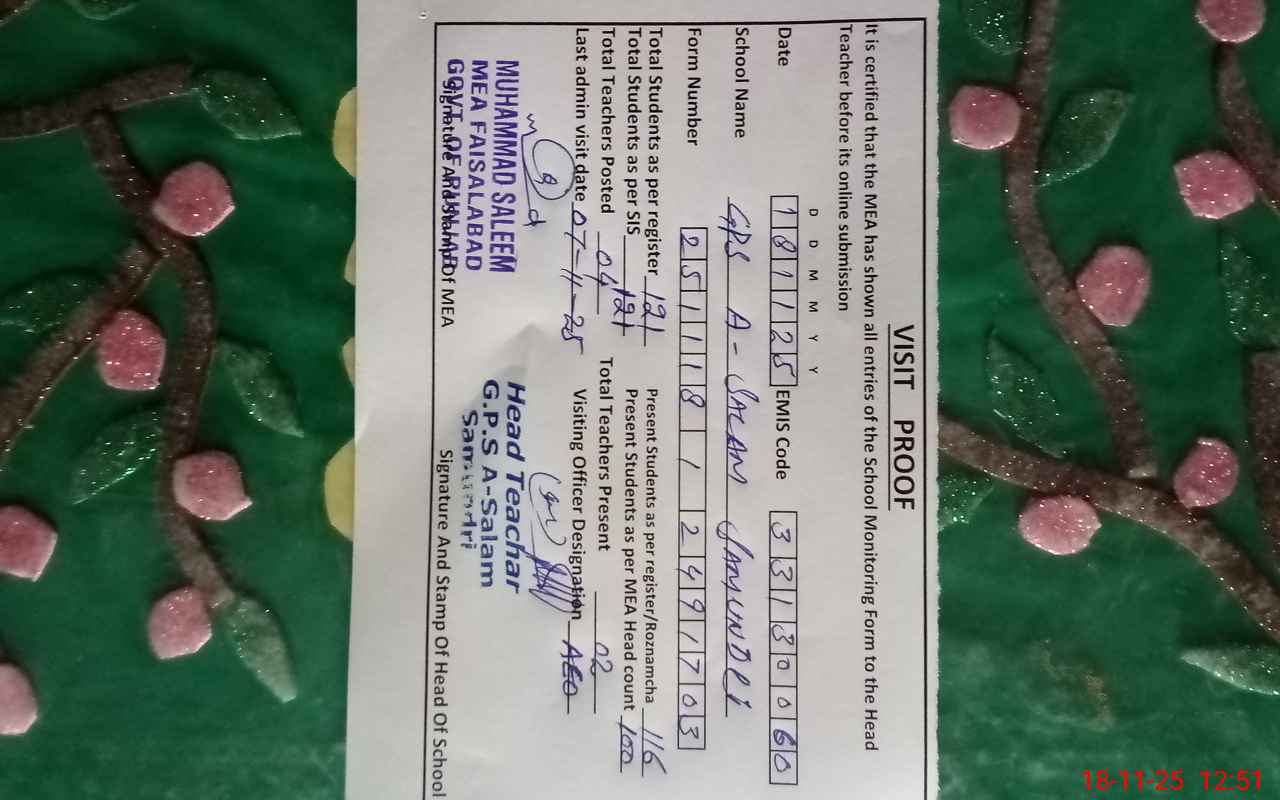 VISIT PROOF
It is certified that the MEA has shown all entries of the School Monitoring Form to the Head
Teacher before its online submission
D D M M Y Y
Date 181125 EMIS Code 33130060
School Name GPS A-SALAM SAMUNDRI
Form Number 251118 1 2491703
Total Students as per register 121 Present Students as per register/Roznamcha 116
Total Students as per SIS 121 Present Students as per MEA Head count 100
Total Teachers Posted 04 Total Teachers Present 02
Last admin visit date 07-11-25 Visiting Officer Designation AEO
MUHAMMAD SALEEM
MEA FAISALABAD
GOVT OF PUNJAB
Signature And Stamp Of MEA
Head Teachar
G.P.S A-Salam
Samundri
Signature And Stamp Of Head Of School
18-11-25 12:51